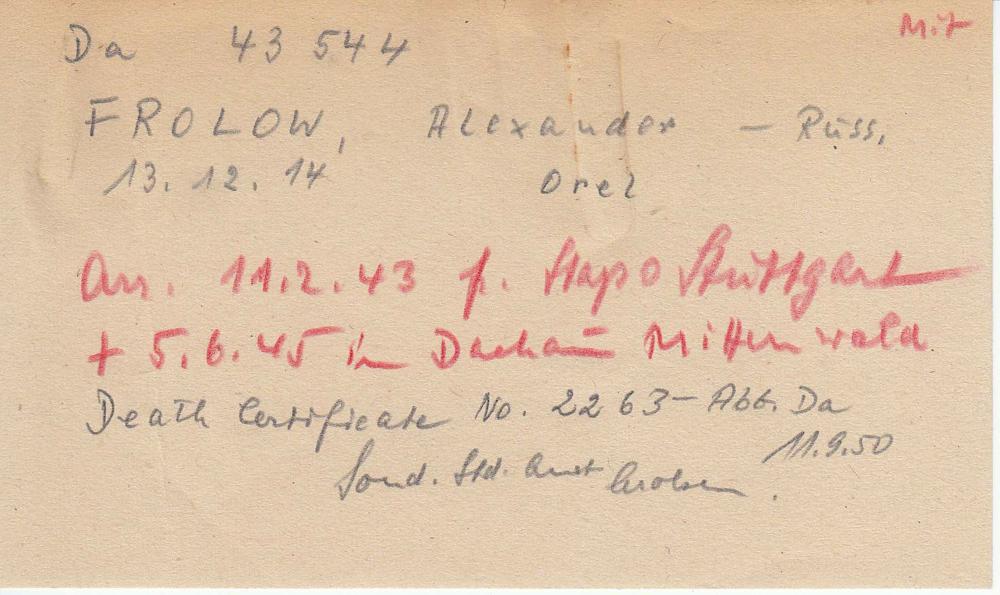 Mit
Da 43 544
FROLOW, Alexander – Russ.
13.12.14 Orel
Arr. 11.2.43 f. Stapo Stuttgart
+ 5.6.45 in Dachau Mittenwald
Death Certificate No. 2263 – Abt. Da
11.9.50
Sond. Std. Amt Arolsen.